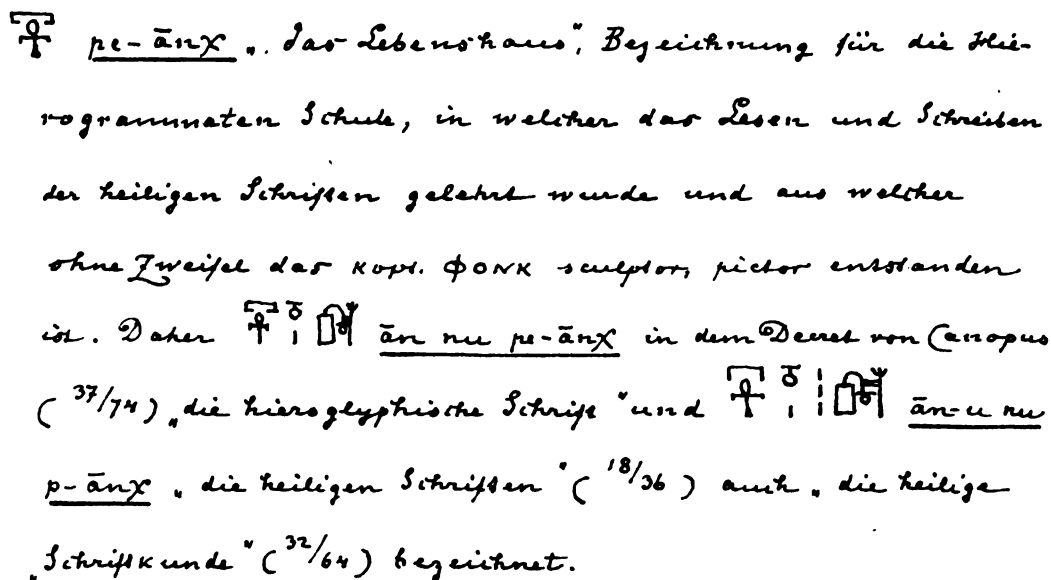 𓉐𓋹 pe-ānχ „das Lebenshaus", Bezeichnung für die Hie-
rogrammaten Schule, in welcher das Lesen und Schreiben
der heiligen Schriften gelehrt wurde und aus welcher
ohne Zweifel das kopt. ΦΟΝΚ sculptor, pictor entstanden
ist. Daher ān nu pe-ānχ in dem Decret von Canopus
(37/74) „die hieroglyphische Schrift" und ān-u nu
p-ānχ „die heiligen Schriften" (18/36) auch „die heilige
„Schriftkunde" (32/64) bezeichnet.